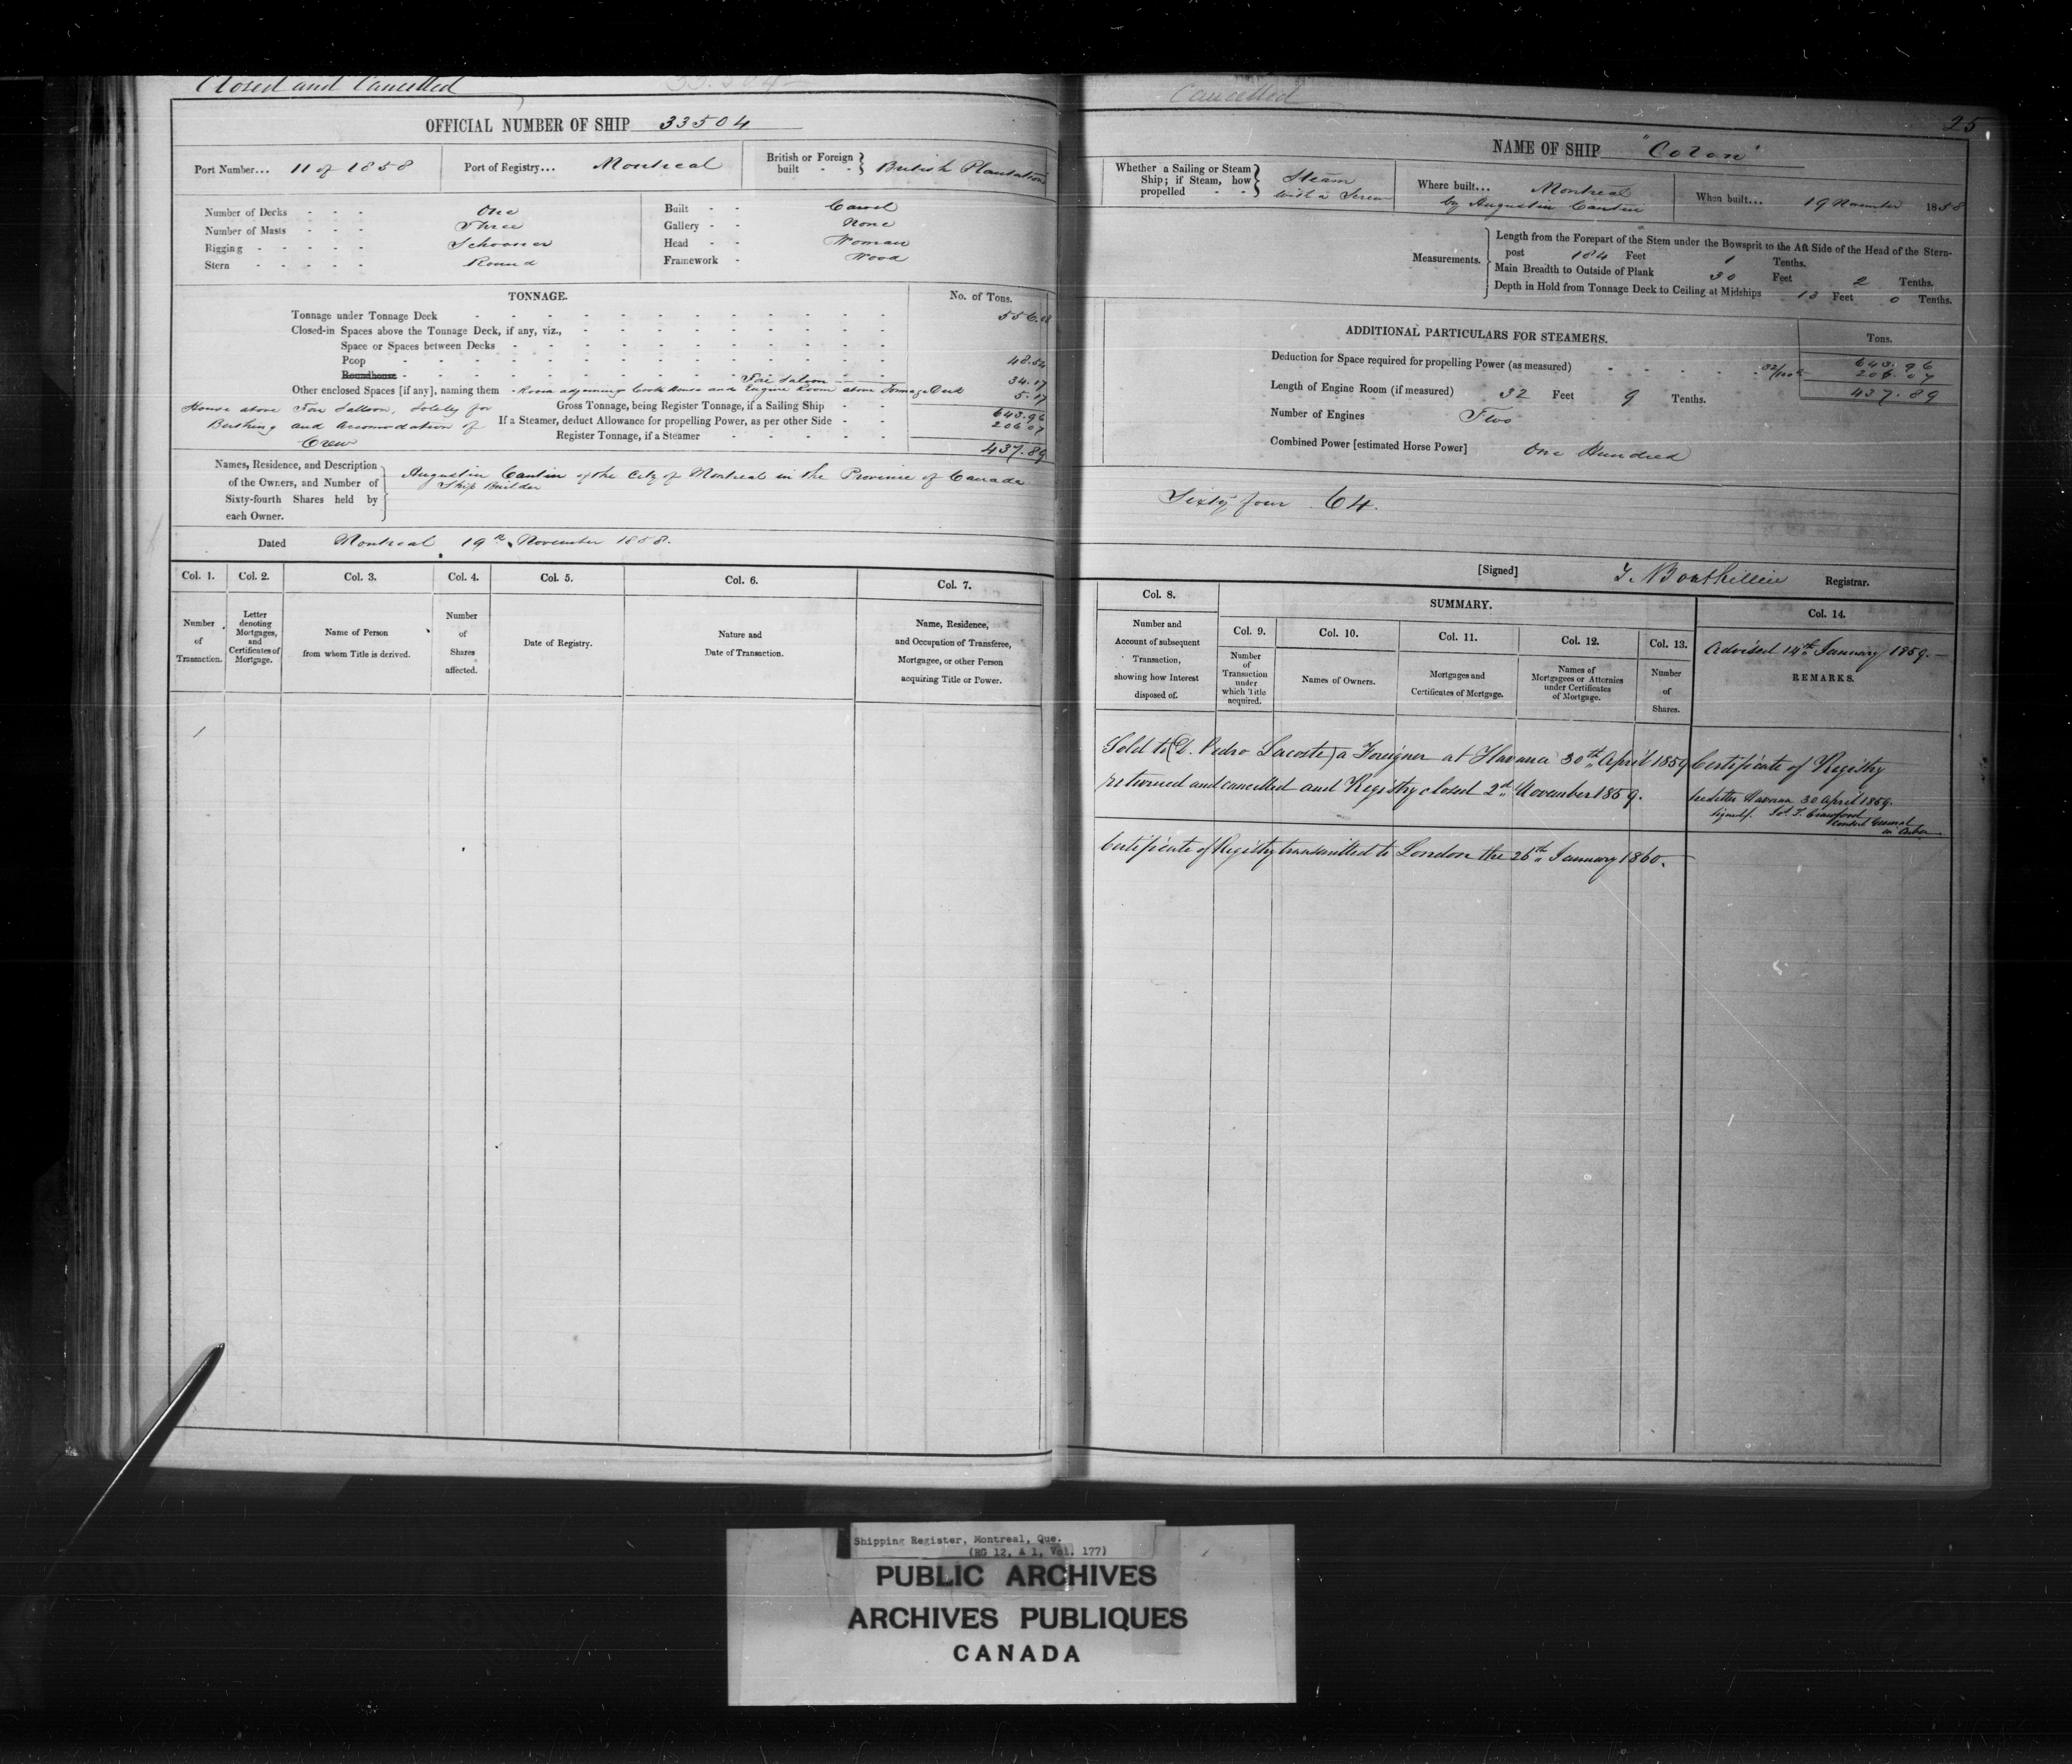 Closed and Cancelled
33504
OFFICIAL NUMBER OF SHIP 33504
Port Number... 11 of 1858
Port of Registry... Montreal
British or Foreign built - - } British Plantation
Number of Decks - - - One
Number of Masts - - - Three
Rigging - - - - - Schooner
Stern - - - - - Round
Built - - Carvel
Gallery - - None
Head - - Woman
Framework - Wood
TONNAGE.
No. of Tons.
Tonnage under Tonnage Deck 556.08
Closed-in Spaces above the Tonnage Deck, if any, viz.,
Space or Spaces between Decks
Poop 48.54
Roundhouse Fore Saloon 34.17
Other enclosed Spaces [if any], naming them - Room adjoining Cook House and Engine Room above Tonnage Deck 5.17
House above Fore Salloon, Solely for
Berthing and Accomodation of
Crew
Gross Tonnage, being Register Tonnage, if a Sailing Ship 643.96
If a Steamer, deduct Allowance for propelling Power, as per other Side 206.07
Register Tonnage, if a Steamer 437.89
Names, Residence, and Description
of the Owners, and Number of
Sixty-fourth Shares held by
each Owner.
Augustin Cantin of the City of Montreal in the Province of Canada
Ship Builder
Dated Montreal 19th November 1858.
Col. 1.
Col. 2.
Col. 3.
Col. 4.
Col. 5.
Col. 6.
Col. 7.
Number
of
Transaction.
Letter
denoting
Mortgages,
and
Certificates of
Mortgage.
Name of Person
from whom Title is derived.
Number
of
Shares
affected.
Date of Registry.
Nature and
Date of Transaction.
Name, Residence,
and Occupation of Transferee,
Mortgagee, or other Person
acquiring Title or Power.
1
Cancelled
25
NAME OF SHIP "Colon"
Whether a Sailing or Steam
Ship; if Steam, how
propelled - -
Steam
with a Screw
Where built... Montreal
by Augustin Cantin
When built... 19 November 1858
Measurements.
Length from the Forepart of the Stem under the Bowsprit to the Aft Side of the Head of the Stern-
post 184 Feet 1 Tenths.
Main Breadth to Outside of Plank 30 Feet 2 Tenths.
Depth in Hold from Tonnage Deck to Ceiling at Midships 13 Feet 0 Tenths.
ADDITIONAL PARTICULARS FOR STEAMERS.
Tons.
Deduction for Space required for propelling Power (as measured) 643.96
32/100th 206.07
437.89
Length of Engine Room (if measured) 32 Feet 9 Tenths.
Number of Engines Two
Combined Power [estimated Horse Power] One Hundred
Sixty four 64.
[Signed] T. Bouthillier Registrar.
Col. 8.
Number and
Account of subsequent
Transaction,
showing how Interest
disposed of.
SUMMARY.
Col. 9.
Number
of
Transaction
under
which Title
acquired.
Col. 10.
Names of Owners.
Col. 11.
Mortgages and
Certificates of Mortgage.
Col. 12.
Names of
Mortgagees or Attornies
under Certificates
of Mortgage.
Col. 13.
Number
of
Shares.
Col. 14.
Advised 14th January 1859.
REMARKS.
Sold to (D. Pedro Lacoste) a Foreigner at Havana 30th April 1859 Certificate of Registry
returned and cancelled and Registry closed 2d November 1859.
See letter Havana 30 April 1859.
signed/. Jos. T. Crawford
Consul General
in Cuba
Certificate of Registry transmitted to London the 26th January 1860.
Shipping Register, Montreal, Que.
(RG 12, A 1, Vol. 177)
PUBLIC ARCHIVES
ARCHIVES PUBLIQUES
CANADA